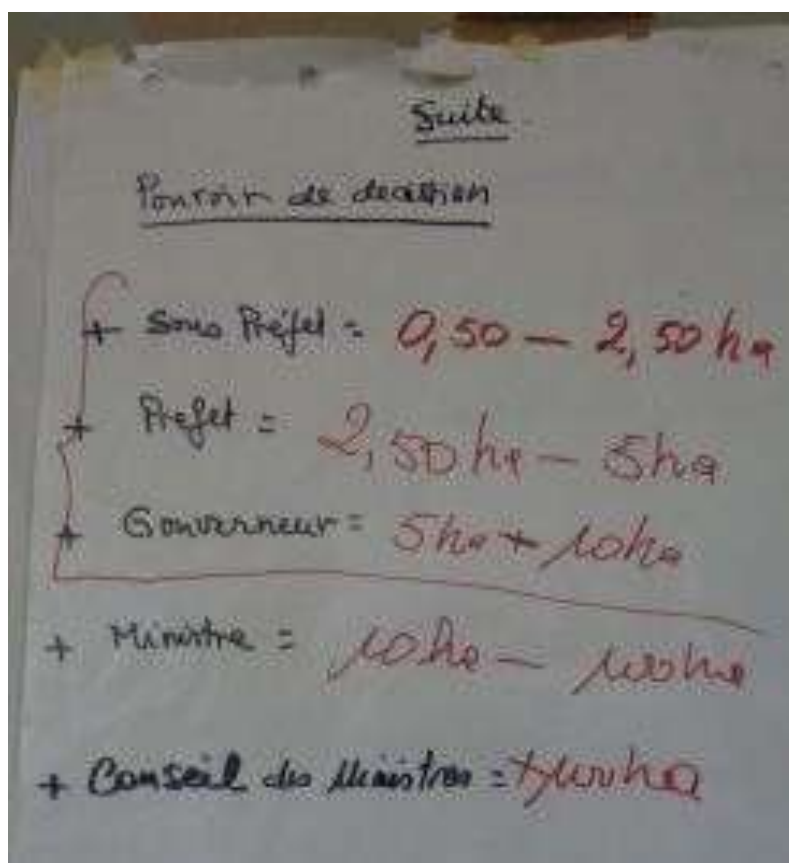 Suite.
Pouvoir de decision
+ Sous Préfet = 0,50 — 2,50 ha
+ Prefet = 2,50 ha — 5 ha
+ Gouverneur = 5 ha + 10 ha
+ Ministre = 10 ha — 100 ha
+ Conseil des Ministres = +100 ha